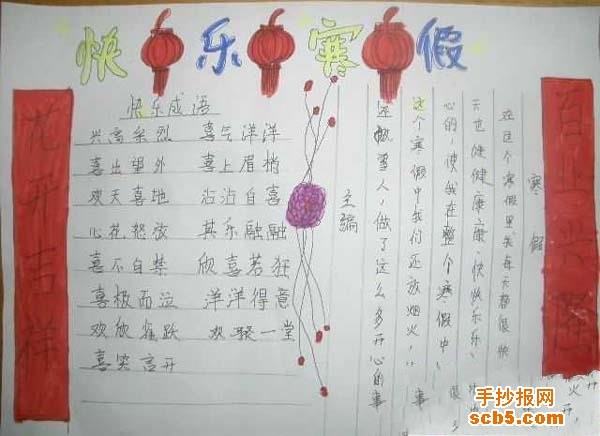 快乐寒假
花开吉祥
快乐成语
兴高采烈 喜气洋洋
喜出望外 喜上眉梢
欢天喜地 沾沾自喜
心花怒放 其乐融融
喜不自禁 欣喜若狂
喜极而泣 洋洋得意
欢欣雀跃 欢聚一堂
喜笑言开
百业兴隆
寒假
在这个寒假里我每天都很快
天也健健康康、快快乐乐、
心的,使我在整个寒假中,很
这个寒假中我们还放烟火,事
还做雪人,做了这么多开心的事
主编
手抄报网
scb5.com